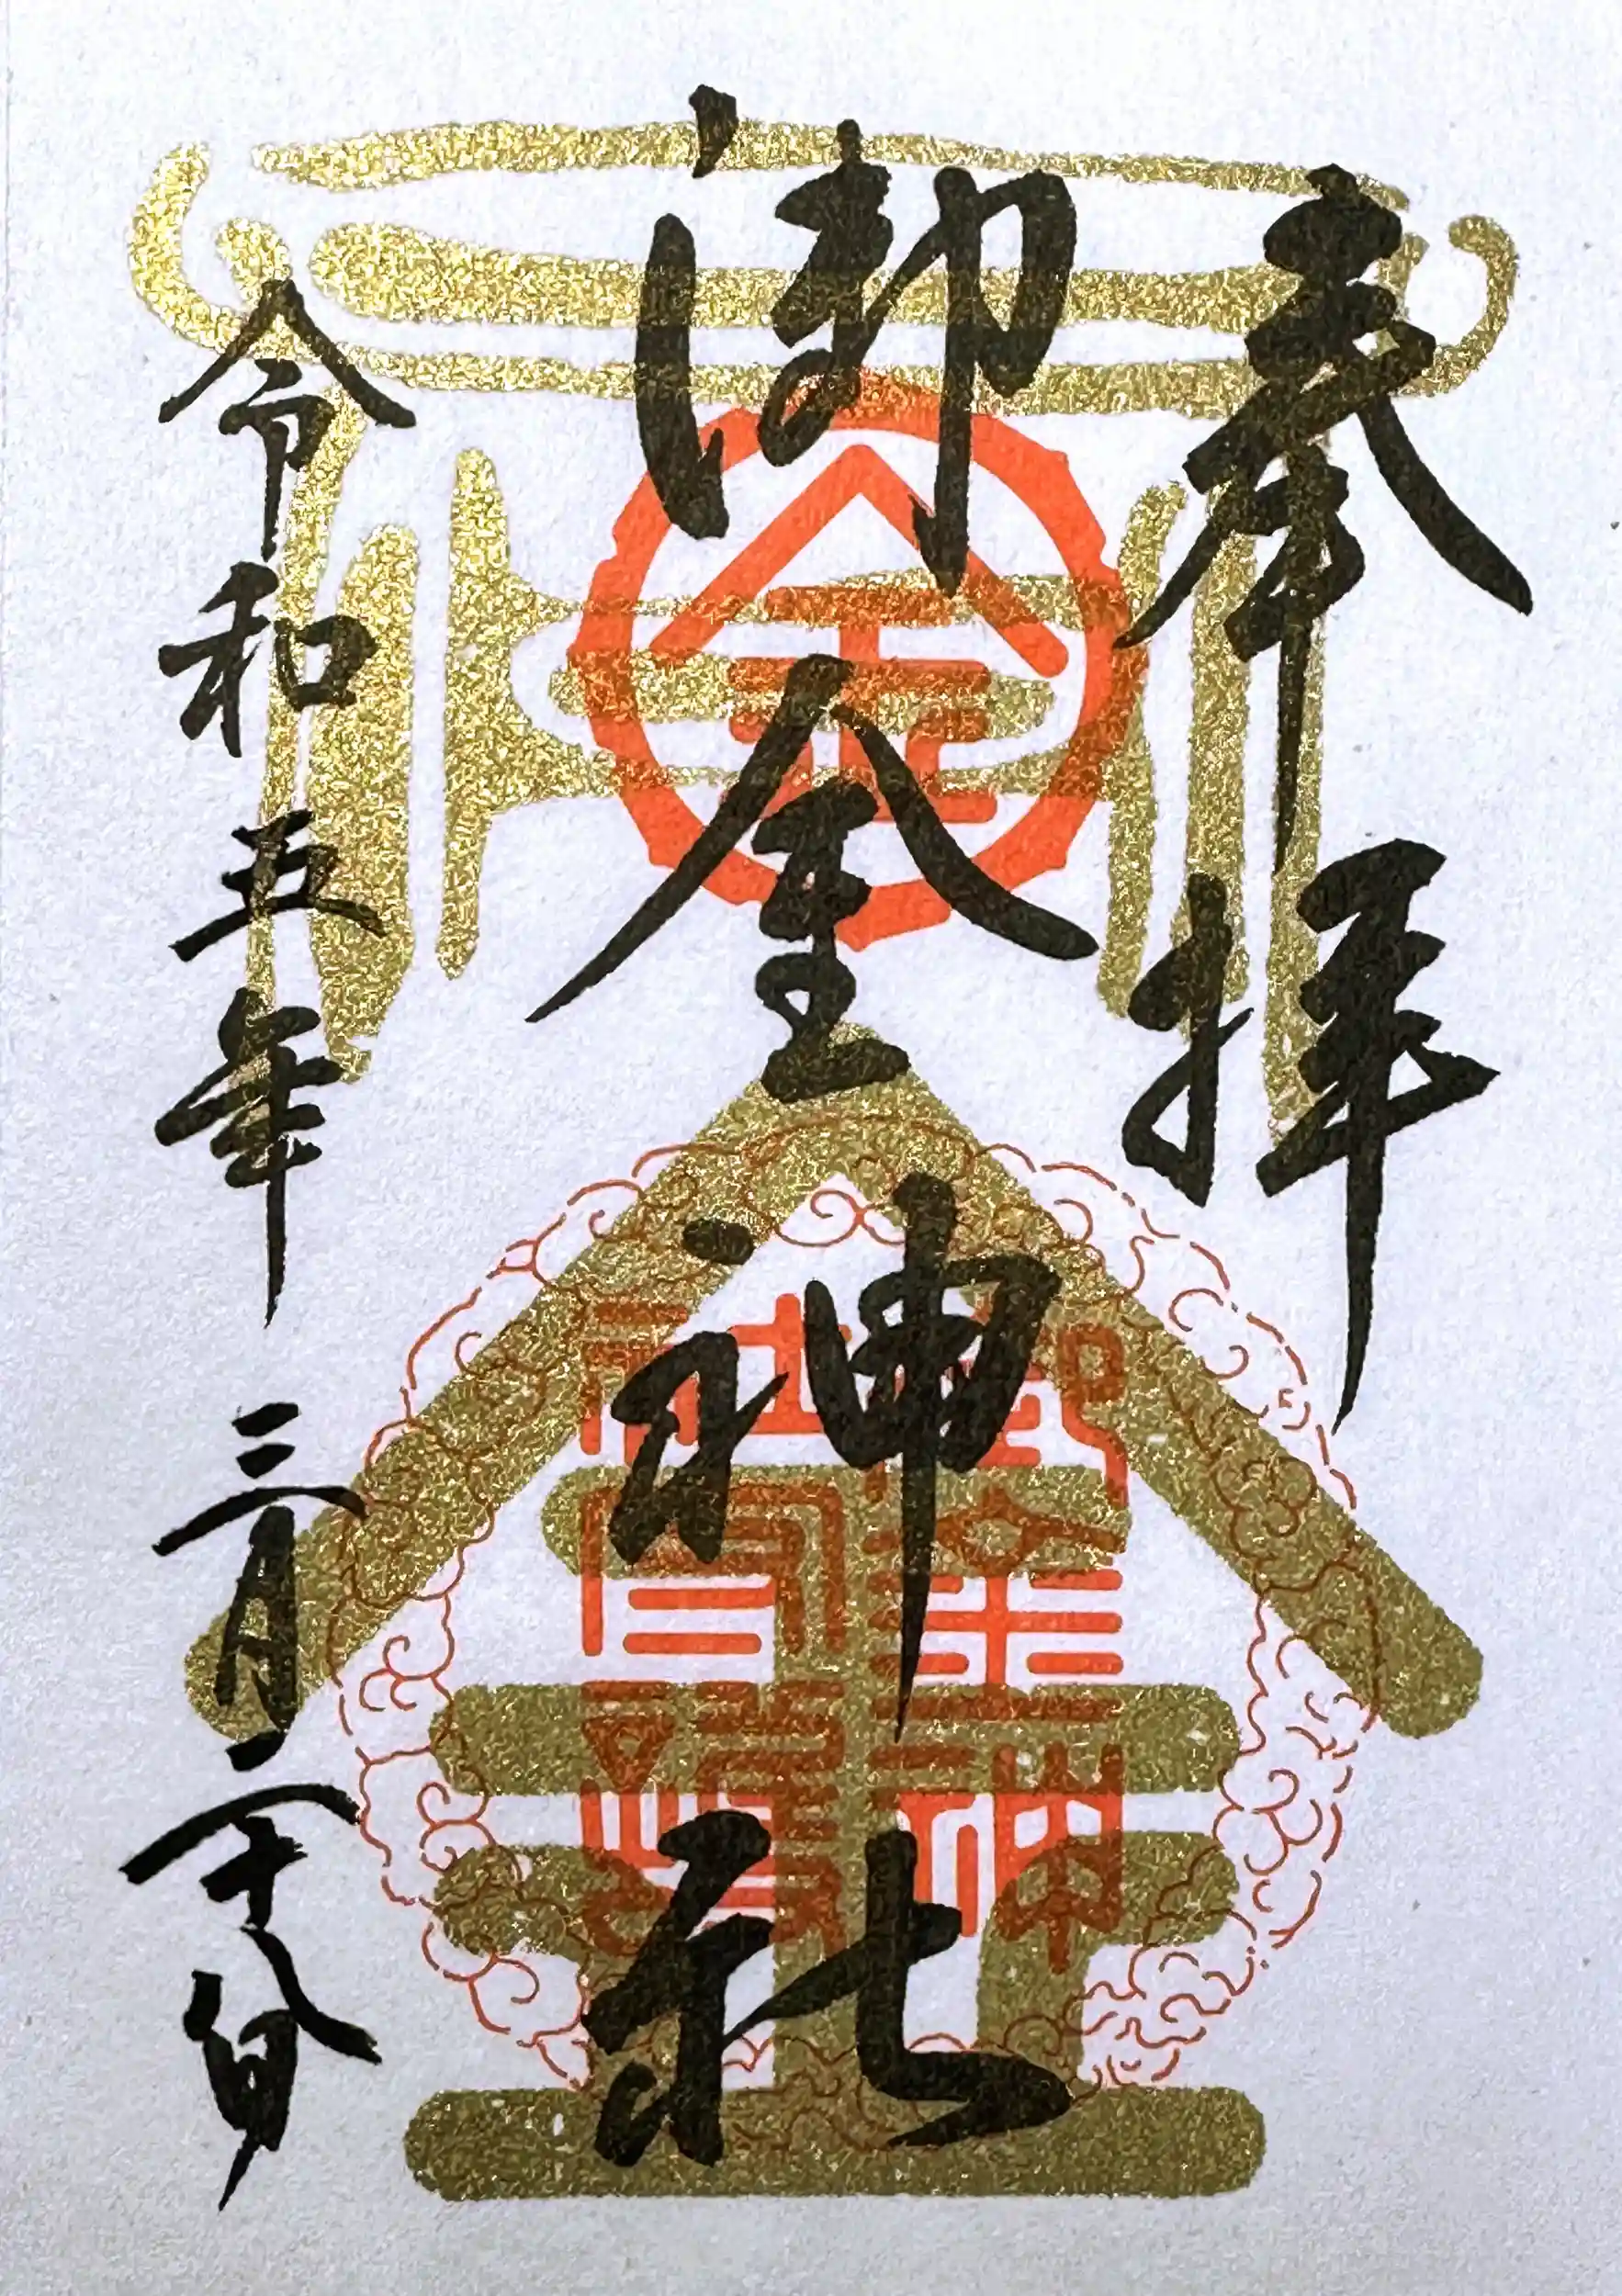 奉拝
御金神社
令和五年三月二十八日
金
金
御金神
社